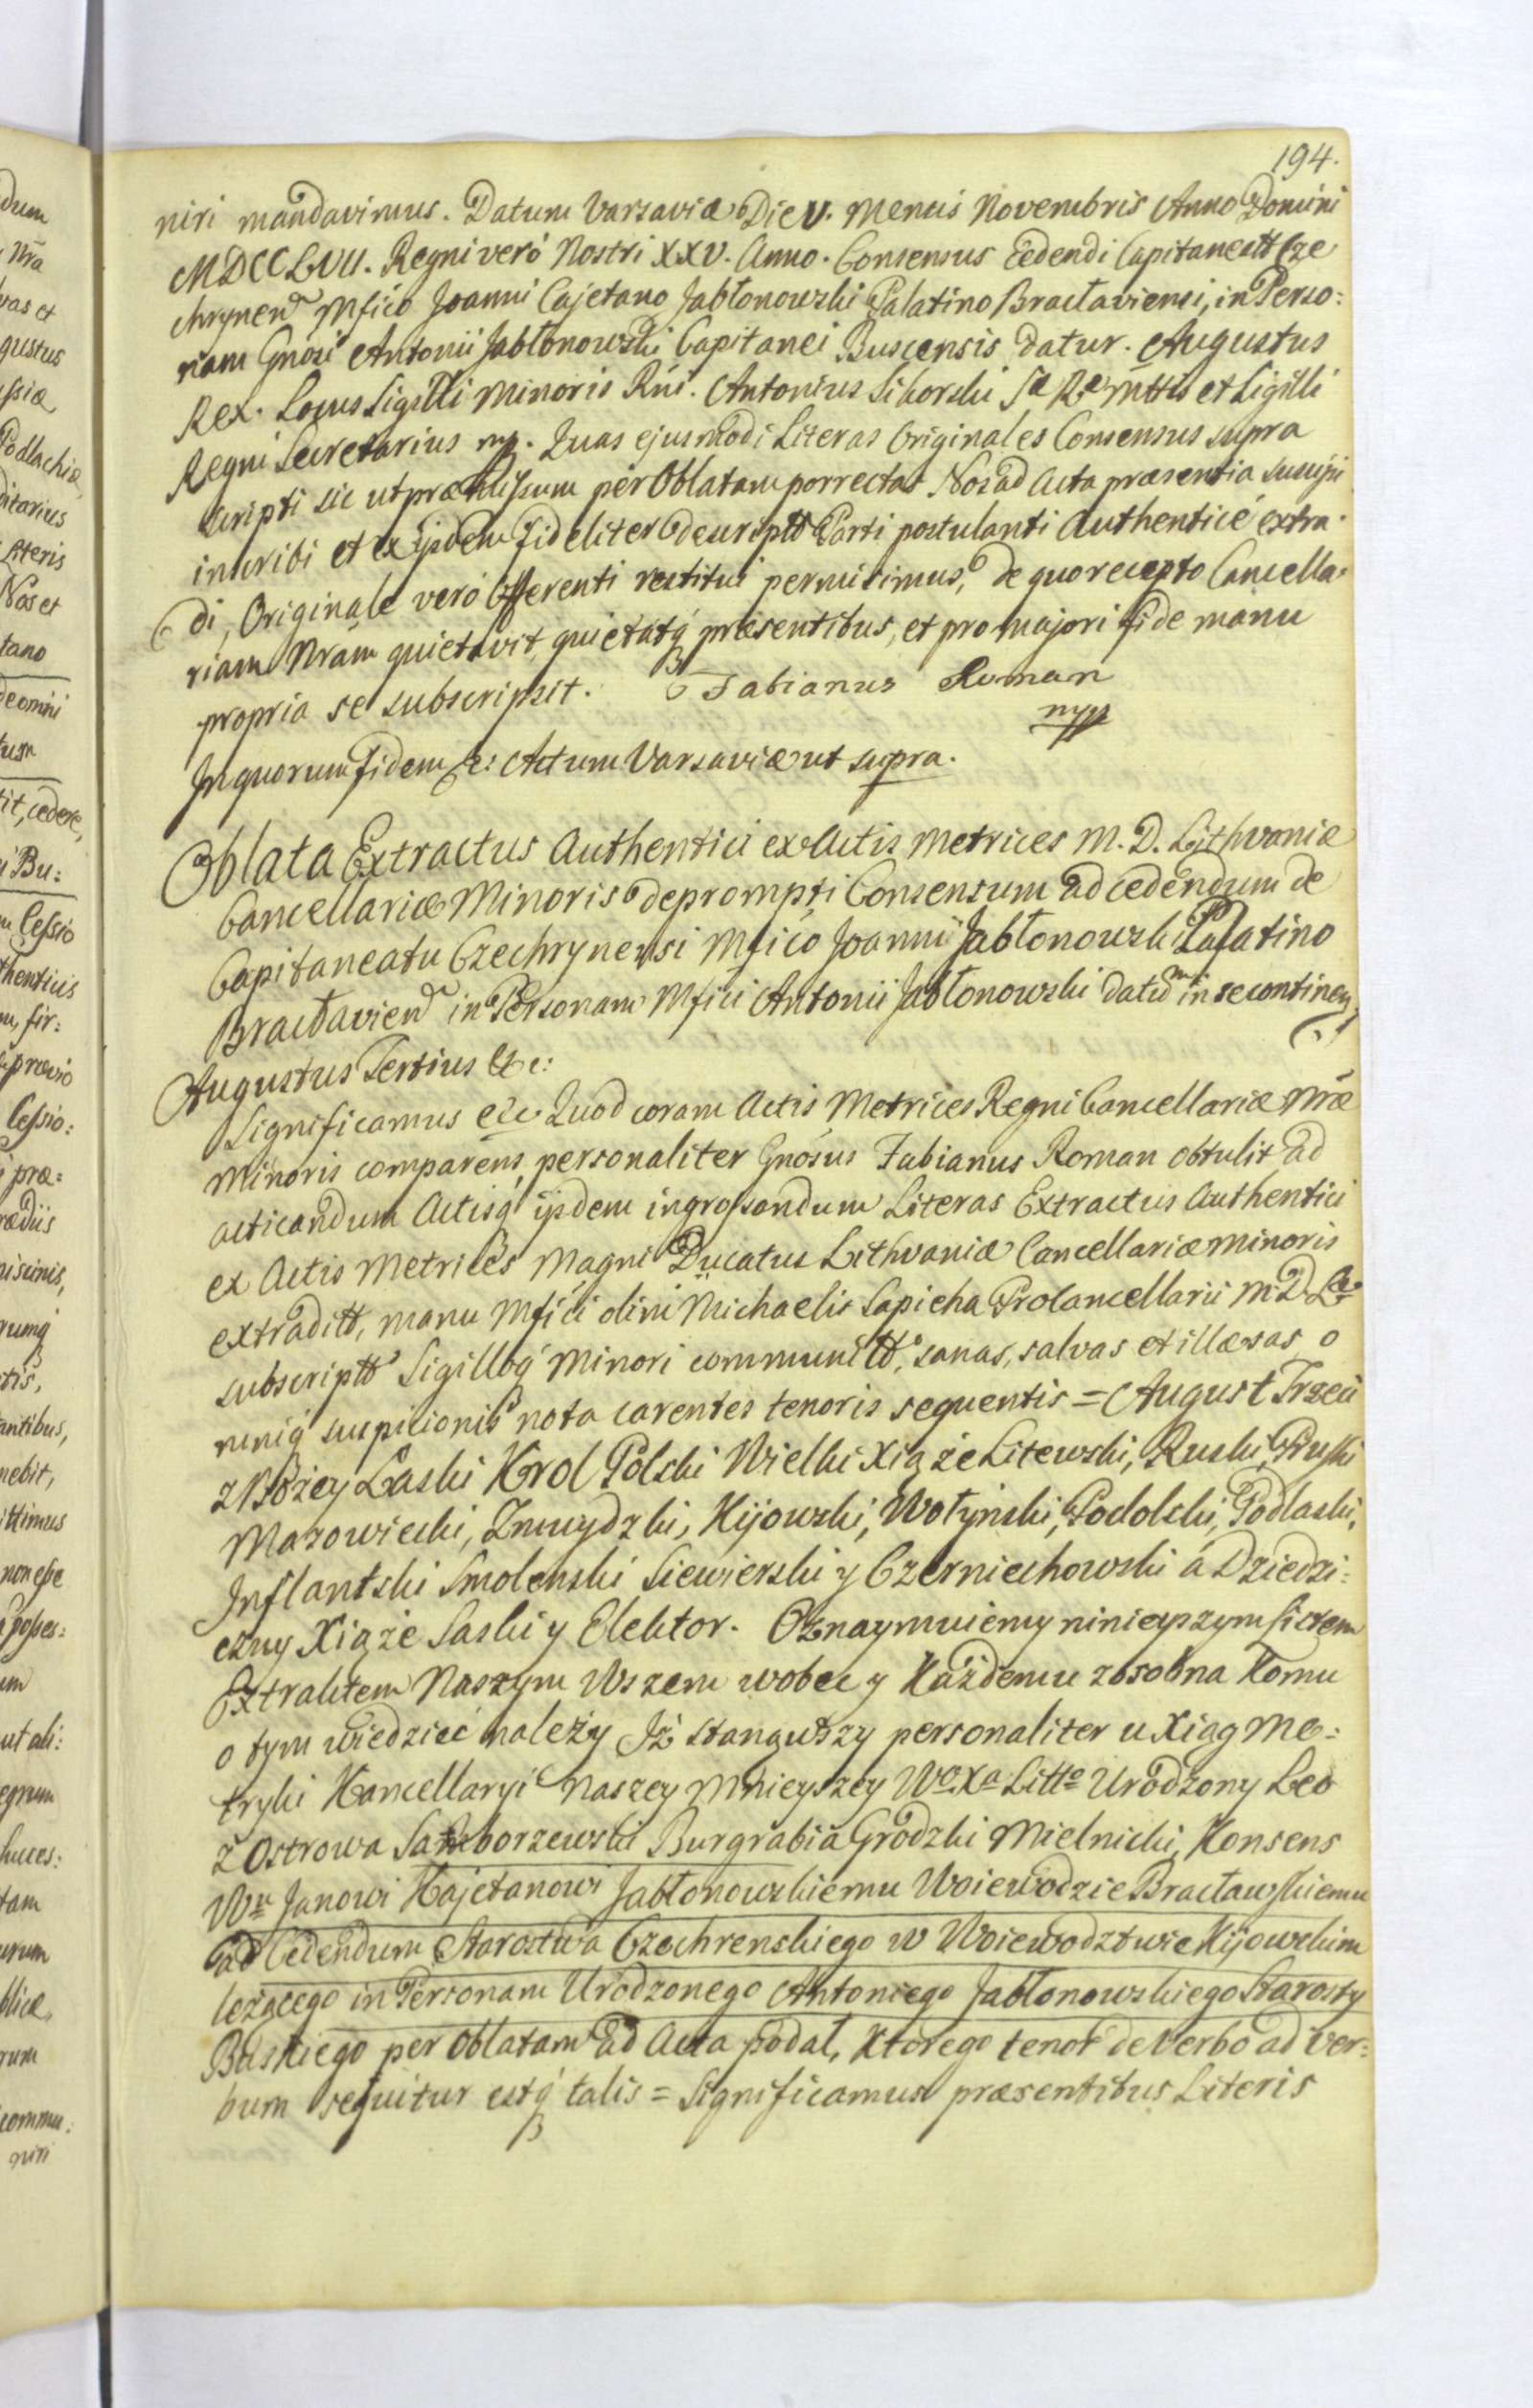 194.
niri mandavimus. Datum Varsaviæ Die V. Mensis Novembris Anno Domini
MDCCLVII. Regni verò Nostri XXV. Anno. Consensus Cedendi Capitaneatt Cze
chrynen Mfico Joanni Cajetano Jabłonowski Palatino Bracłaviensi, in Perso:
nam Gnosi Antonii Jabłonowski Capitanei Buscensis datur. Augustus
Rex. Locus Sigilli Minoris Rni. Antonius Sikorski Sæ Ræ Mttis et Sigilli
Regni Secretarius mp. Quas ejusmodi Literas Originales Consensus supra
scripti sic ut præmissum per Oblatam porrectas Nos ad Acta præsentia suscipi
inscribi et ex ijsdem fideliter descriptt Parti postulanti Authenticè extra
di, Originale verò Offerenti restitui permisimus, de quo recepto Cancella:
riam Nram quietavit, quietatq præsentibus, et pro majori fide manu
propria se subscripsit. Fabianus Roman
mpp
In quorum Fidem &: Actum Varsaviæ ut supra.
Oblata Extractus Authentici ex Actis Metrices M. D. Lithvaniæ
Cancellariæ Minoris deprompti Consensum ad cedendum de
Capitaneatu Czechrynensi Mfico Joanni Jabłonowski Palatino
Bracłavien in Personam Mfici Antonii Jabłonowski Datum in se continen
Augustus Tertius &c:
Significamus etc Quod coram Actis Metrices Regni Cancellariæ Nræ
Minoris comparens personaliter Gnosus Fabianus Roman obtulit ad
acticandum Actisq ijsdem ingrossandum Literas Extractus Authentici
ex Actis Metrices Magni Ducatus Lithvaniæ Cancellariæ Minoris
extraditt, manu Mfici olim Michaelis Sapieha Procancellarii M. D. L.
subscriptt Sigilloq Minori communitt, sanas, salvas et illæsas o
mniq suspicionis nota carentes tenoris sequentis = August Trzeci
z Bożey Łaski Krol Polski Wielki Xiąże Litewski, Ruski, Pruski
Mazowiecki, Zmuydzki, Kijowski, Wołyński, Podolski, Podlaski,
Inflantski Smolenski Siewierski y Czerniechowski á Dziedzi:
czny Xiąże Saski y Elektor. Oznaymuiemy ninieyszym listem
Extraktem Naszym Wszem wobec y Każdemu zosobna Komu
o tym wiedzieć należy Iż stanąwszy personaliter u Xiąg Me:
tryki Kancellaryi Naszey Mnieyszey Wo. Xa Litto Urodzony Leo
z Ostrowa Samborzewski Burgrabia Grodzki Mielnicki, Konsens
Wu Janowi Kajetanowi Jabłonowskiemu Woiewodzie Bracławskiemu
ad Cedendum Starostwa Czechrenskiego w Woiewodztwie Kijowskim
leżącego in Personam Urodzonego Antoniego Jabłonowskiego Starosty
Buskiego per Oblatam ad Acta podał, Ktorego tenor de Verbo ad Ver:
bum sequitur estq talis = Significamus præsentibus Literis